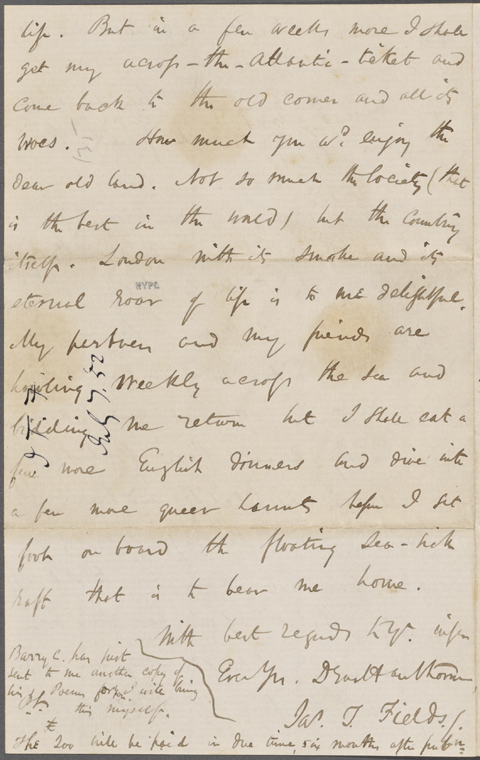 life. But in a few weeks more I shall
get my across-the-Atlantic-ticket and
come back to the old corner and all its
woes. How much you wd. enjoy the
dear old land. Not so much the Society (that
is the best in the world) but the country
itself. London with its smoke and its
eternal roar of life is to me delightful.
NYPL
My partners and my friends are
howling weekly across the sea and
bidding me return but I shall eat a
few more English dinners and dive into
a few more queer haunts before I set
foot on board the floating sea-sick
raft that is to bear me home.
With best regards to yr. wife
Ever Yrs. Dear Hawthorne
Jas. T. Fields.
Barry C. has just
sent to me another copy of
his Poems for you. I will bring
this myself.
The £200 will be paid in due time, six months after pubn.
J. T. F.
July 7, 52